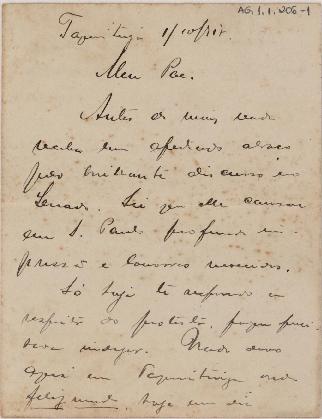 AG.1.1.206-1
Taquaritinga 1/10/917.
Meu Pae.
Antes de mais nada
receba um afectuoso abraço
pelo brilhante discurso no
Senado. Sei que elle causou
em S. Paulo profunda im-
pressão e louvores merecidos.
Só hoje te respondo a
respeito do protesto, porque
Nada devo
aqui em Taquaritinga onde
felizmente, hoje em dia